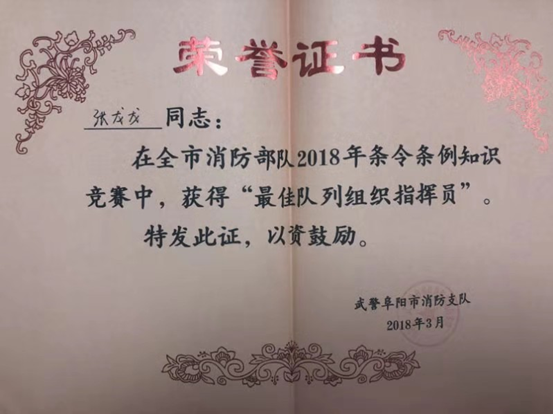 荣誉证书
张龙龙 同志：
在全市消防部队2018年条令条例知识
竞赛中，获得“最佳队列组织指挥员”。
特发此证，以资鼓励。
武警阜阳市消防支队
2018年3月